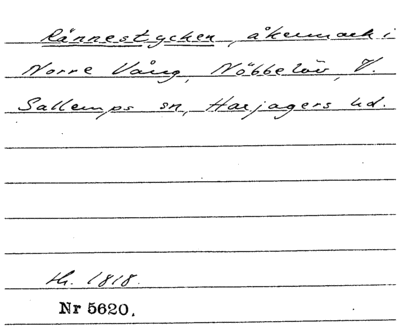 Rännestycken, åkermark i
Norre Vång, Nöbbelöv, V.
Sallerups sn, Harjagers hd.
h. 1818.
Nr 5620.